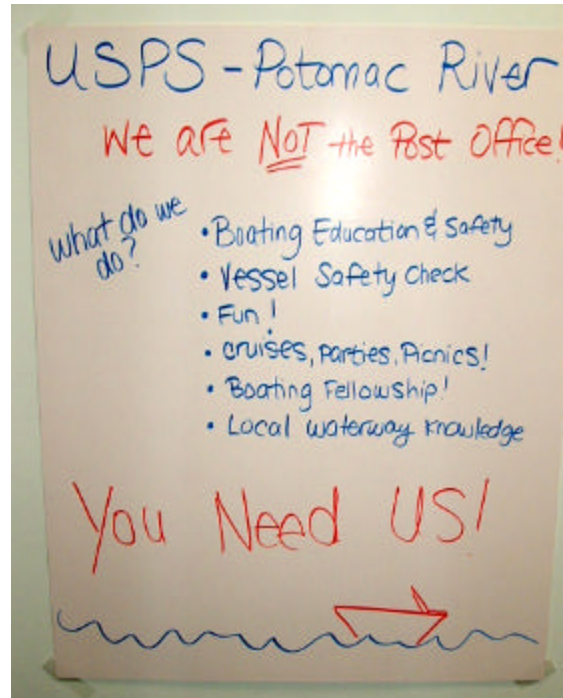 USPS - Potomac River
We are NOT the Post Office!
What do we
do?
• Boating Education & Safety
• Vessel Safety Check
• Fun!
• cruises, Parties, Picnics!
• Boating Fellowship!
• Local waterway knowledge
You Need US!